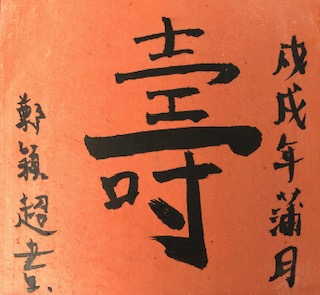 戊戌年蒲月
壽
鄭穎超書